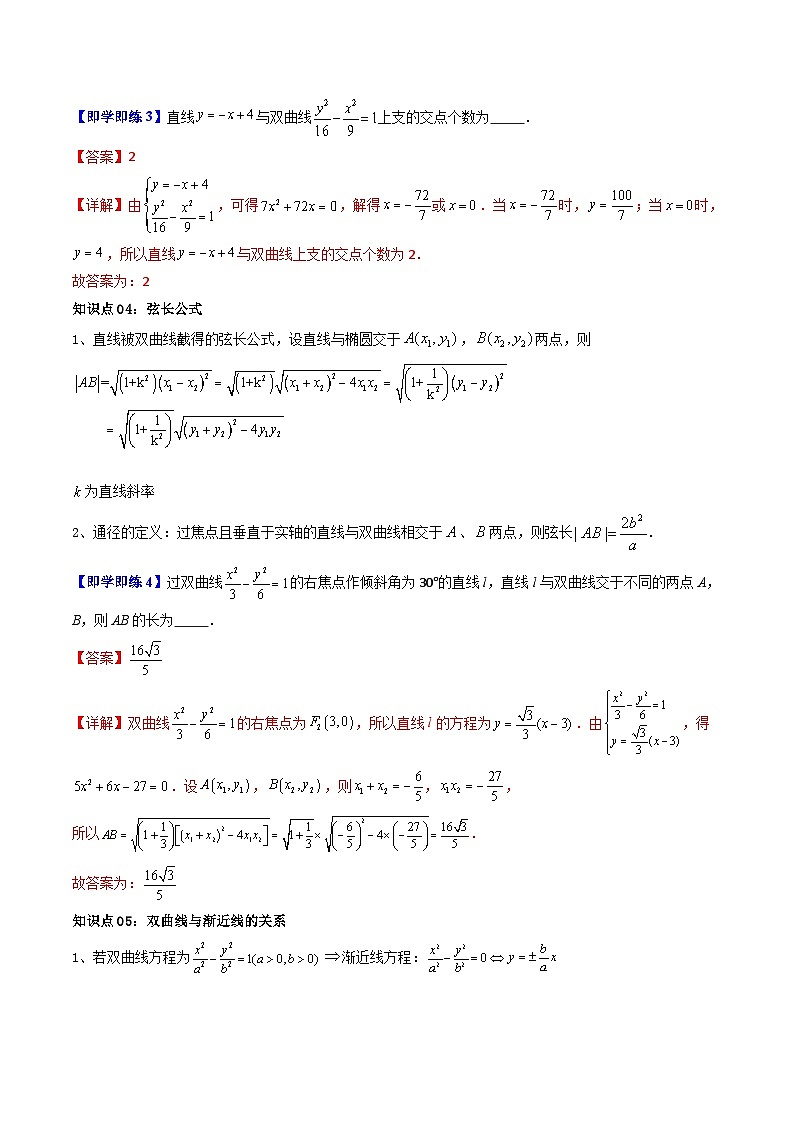 【即学即练 3】直线 y = −x + 4 与双曲线 y²/16 − x²/9 = 1 上支的交点个数为_____.
【答案】2
【详解】由 {y = −x + 4, y²/16 − x²/9 = 1 ，可得 7x² + 72x = 0 ，解得 x = −72/7 或 x = 0 ．当 x = −72/7 时，y = 100/7 ；当 x = 0 时，
y = 4 ，所以直线 y = −x + 4 与双曲线上支的交点个数为 2.
故答案为：2
知识点 04：弦长公式
1、直线被双曲线截得的弦长公式，设直线与椭圆交于 A(x₁, y₁) ，B(x₂, y₂) 两点，则
|AB| = √((1+k²)(x₁ − x₂)²) = √(1+k²) √((x₁ + x₂)² − 4x₁x₂) = √((1+1/k²)(y₁ − y₂)²)
= √(1+1/k²) √((y₁ + y₂)² − 4y₁y₂)
k 为直线斜率
2、通径的定义：过焦点且垂直于实轴的直线与双曲线相交于 A 、B 两点，则弦长 | AB | = 2b²/a .
【即学即练 4】过双曲线 x²/3 − y²/6 = 1 的右焦点作倾斜角为 30°的直线 l，直线 l 与双曲线交于不同的两点 A，
B，则 AB 的长为_____.
【答案】16√3/5
【详解】双曲线 x²/3 − y²/6 = 1 的右焦点为 F₂(3,0)，所以直线 l 的方程为 y = √3/3 (x − 3) ．由 {x²/3 − y²/6 = 1, y = √3/3 (x − 3) ，得
5x² + 6x − 27 = 0 ．设 A(x₁, y₁) ，B(x₂, y₂) ，则 x₁ + x₂ = −6/5 ，x₁x₂ = −27/5 ，
所以 AB = √((1+1/3)[(x₁ + x₂)² − 4x₁x₂]) = √(1+1/3) × √((−6/5)² − 4×(−27/5)) = 16√3/5 .
故答案为：16√3/5
知识点 05：双曲线与渐近线的关系
1、若双曲线方程为 x²/a² − y²/b² = 1(a > 0, b > 0) ⇒ 渐近线方程：x²/a² − y²/b² = 0 ⇔ y = ± b/a x